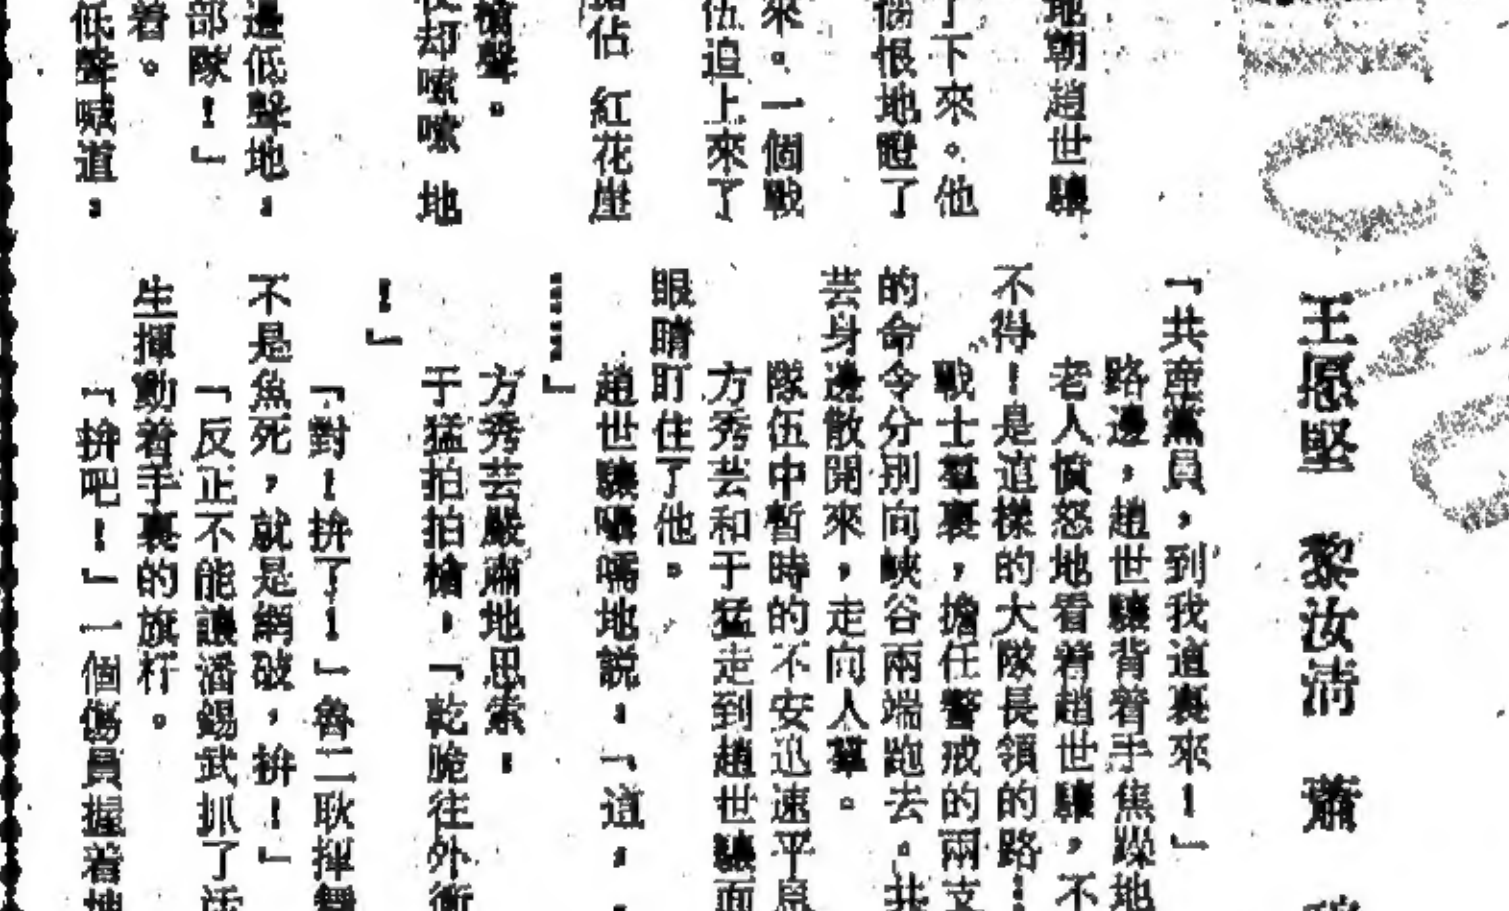 王愿堅　黎汝清　蕭
地朝趙世驤
了下來。他
恨地瞪了
來。一個戰
伍追上來了
佔　紅花崖
槍聲。
却嗽嗽地
邊低聲地：
部隊！」
着。
低聲喊道：
「共產黨員，到我這裏來！」
路邊，趙世驤背着手焦躁地
老人憤怒地看着趙世驤，不
不得！是這樣的大隊長領的路！
戰士羣裏，擔任警戒的兩支
的命令分別向峽谷兩端跑去。共
芸身邊散開來，走向人羣。
隊伍中暫時的不安迅速平息
方秀芸和于猛走到趙世驤面
眼睛盯住了他。
趙世驤囁嚅地說：「這，
……」
方秀芸嚴肅地思索：
于猛拍拍槍：「乾脆往外衝
！」
「對！拚了！」魯二耿揮舞
不是魚死，就是網破，拚！」
「反正不能讓潘錫武抓了活
生揮動着手裏的旗杆。
「拚吧！」一個傷員握着地